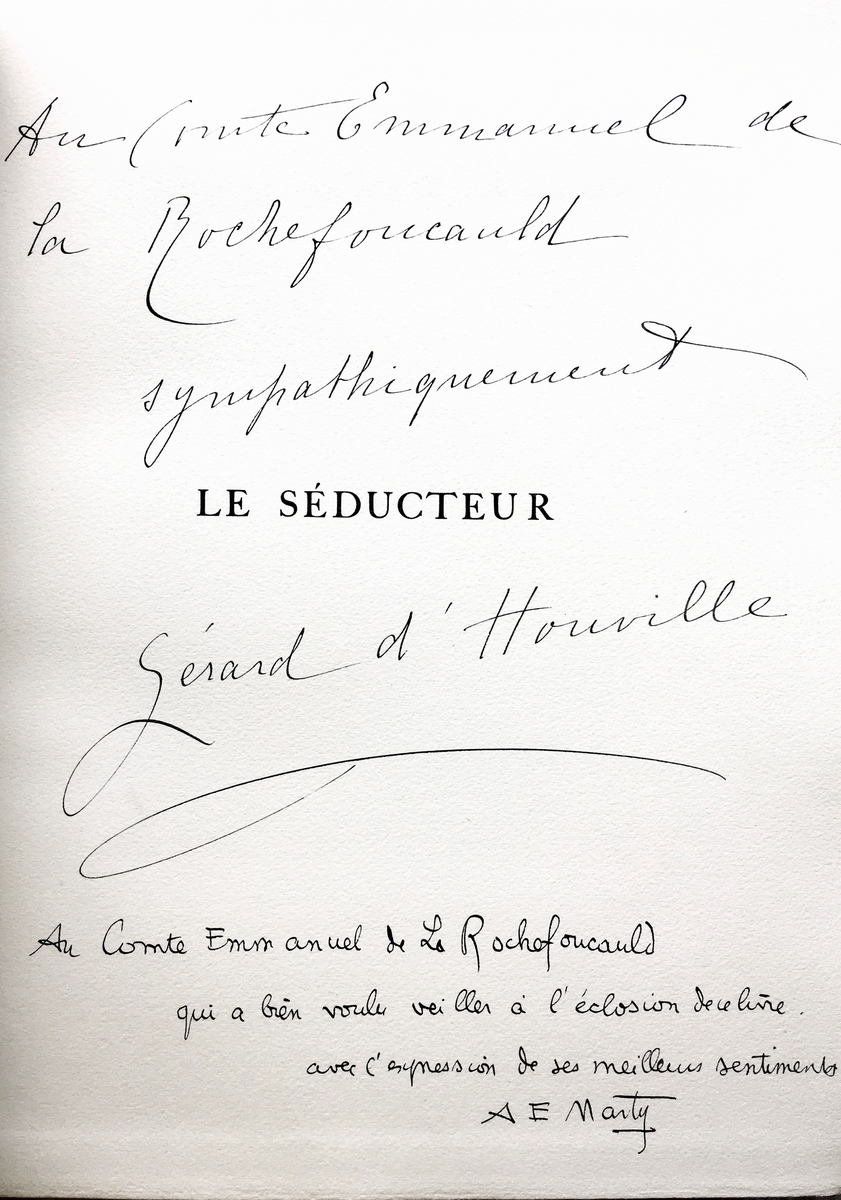 Au Comte Emmanuel de
la Rochefoucauld
sympathiquement
LE SÉDUCTEUR
Gérard d'Houville
Au Comte Emmanuel de La Rochefoucauld
qui a bien voulu veiller à l'éclosion de ce livre.
avec l'expression de ses meilleurs sentiments
A E Marty